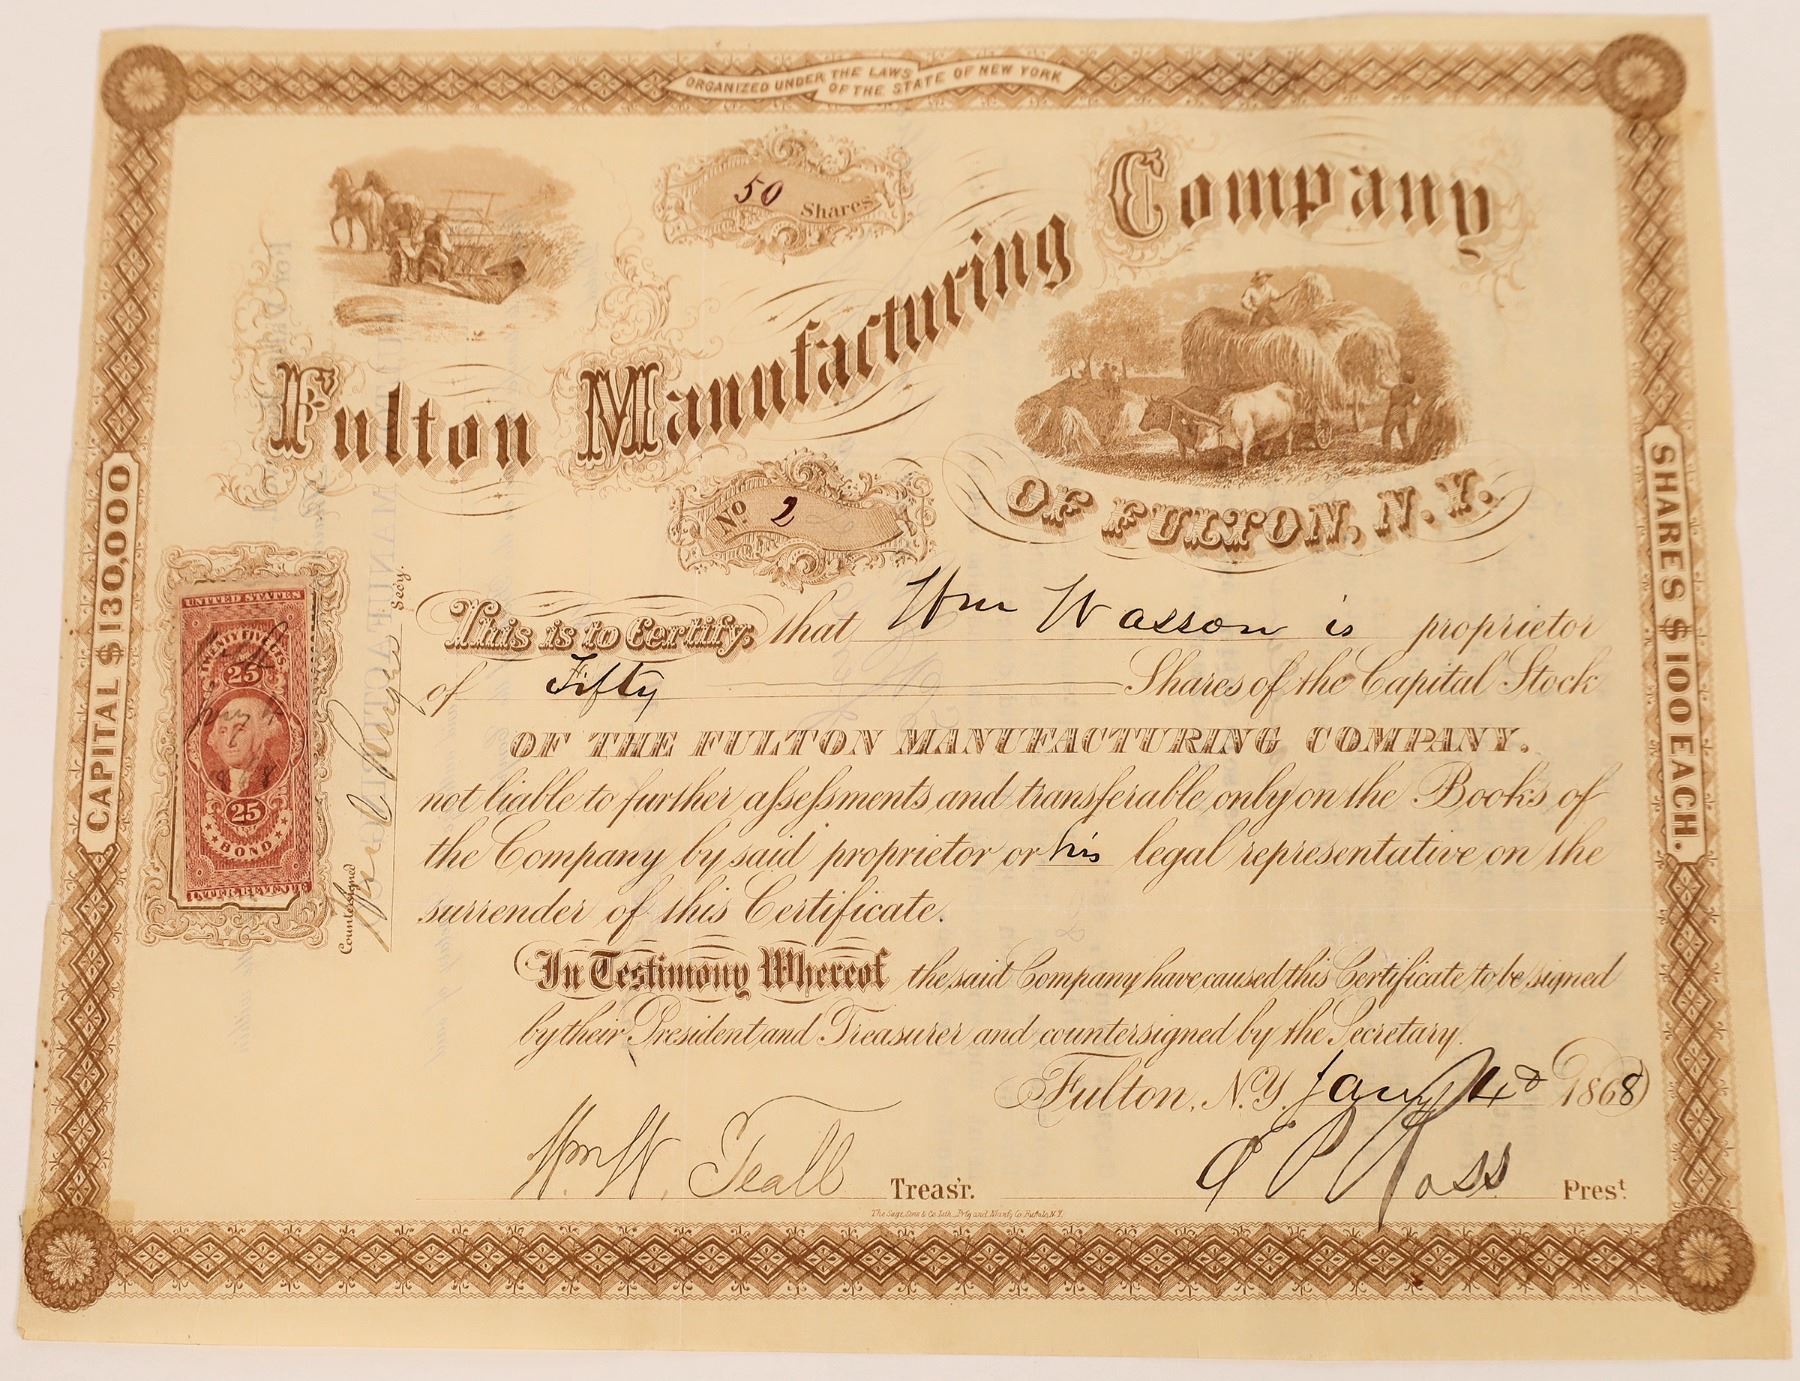 ORGANIZED UNDER THE LAWS OF THE STATE OF NEW YORK
50 Shares
Fulton Manufacturing Company
OF FULTON, N.Y.
No 2
CAPITAL $130,000
SHARES $100 EACH.
UNITED STATES
TWENTY FIVE CTS
25
25
BOND
INTER. REVENUE
Countersigned
Secy.
This is to Certify, that Wm Wasson is proprietor
of Fifty Shares of the Capital Stock
OF THE FULTON MANUFACTURING COMPANY.
not liable to further assessments and transferable only on the Books of
the Company by said proprietor or his legal representative on the
surrender of this Certificate.
In Testimony Whereof the said Company have caused this Certificate to be signed
by their President and Treasurer and countersigned by the Secretary.
Fulton, N.Y. Jany 4d 1868
Wm W. Teall Treas'r. Ross Prest.
The Sage, Sons & Co. Lith. Prtg and Manfg Co. Buffalo N.Y.